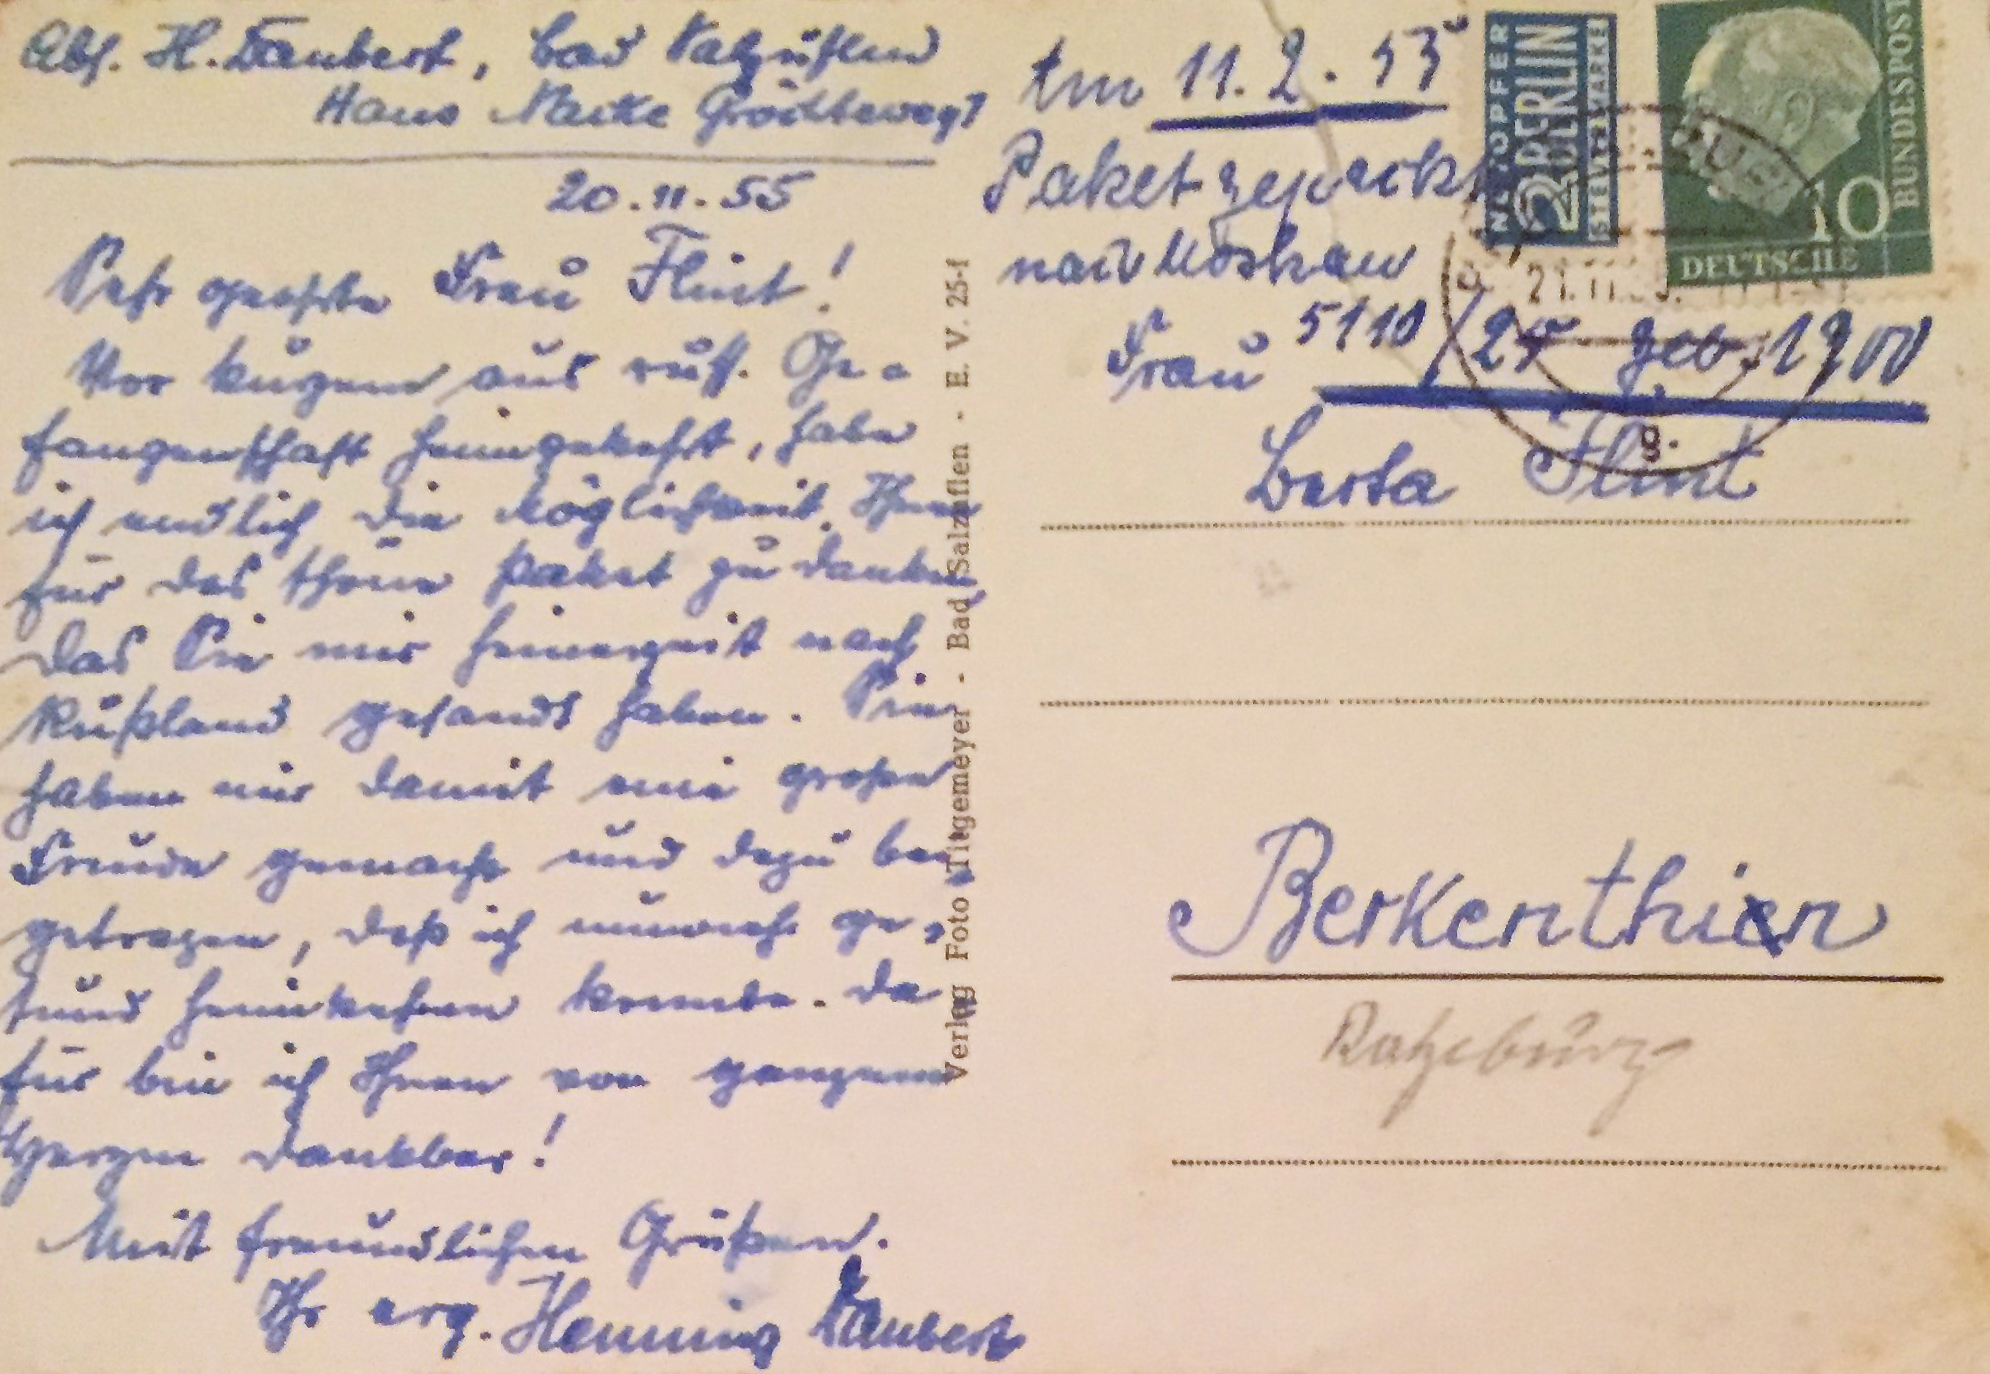 Abs. H. Daubert, Bad Salzuflen
Haus Maike Gröchteweg 1
20.11.55
Sehr geehrte Frau Flint!
Vor kurzem aus russ. Ge-
fangenschaft heimgekehrt, habe
ich endlich die Möglichkeit, Ihnen
für das schöne Paket zu danken,
das Sie mir seinerzeit nach
Rußland gesandt haben. Sie
haben mir damit eine große
Freude gemacht und dazu bei-
getragen, daß ich nunmehr ge-
sund heimkehren konnte. Da-
für bin ich Ihnen von ganzem
Herzen dankbar!
Mit freundlichen Grüßen.
Ihr erg. Henning Daubert
Verlag Foto Titgemeyer - Bad Salzuflen - E. V. 25-f
Am 11.2.53
Paket geschickt
nach Moskau
5110/25 geb. 1900
Frau
Berta Flint
Berkenthin
Ratzeburg
NOTOPFER
2 BERLIN
STEUERMARKE
10
DEUTSCHE
BUNDESPOST
21.11.
g.